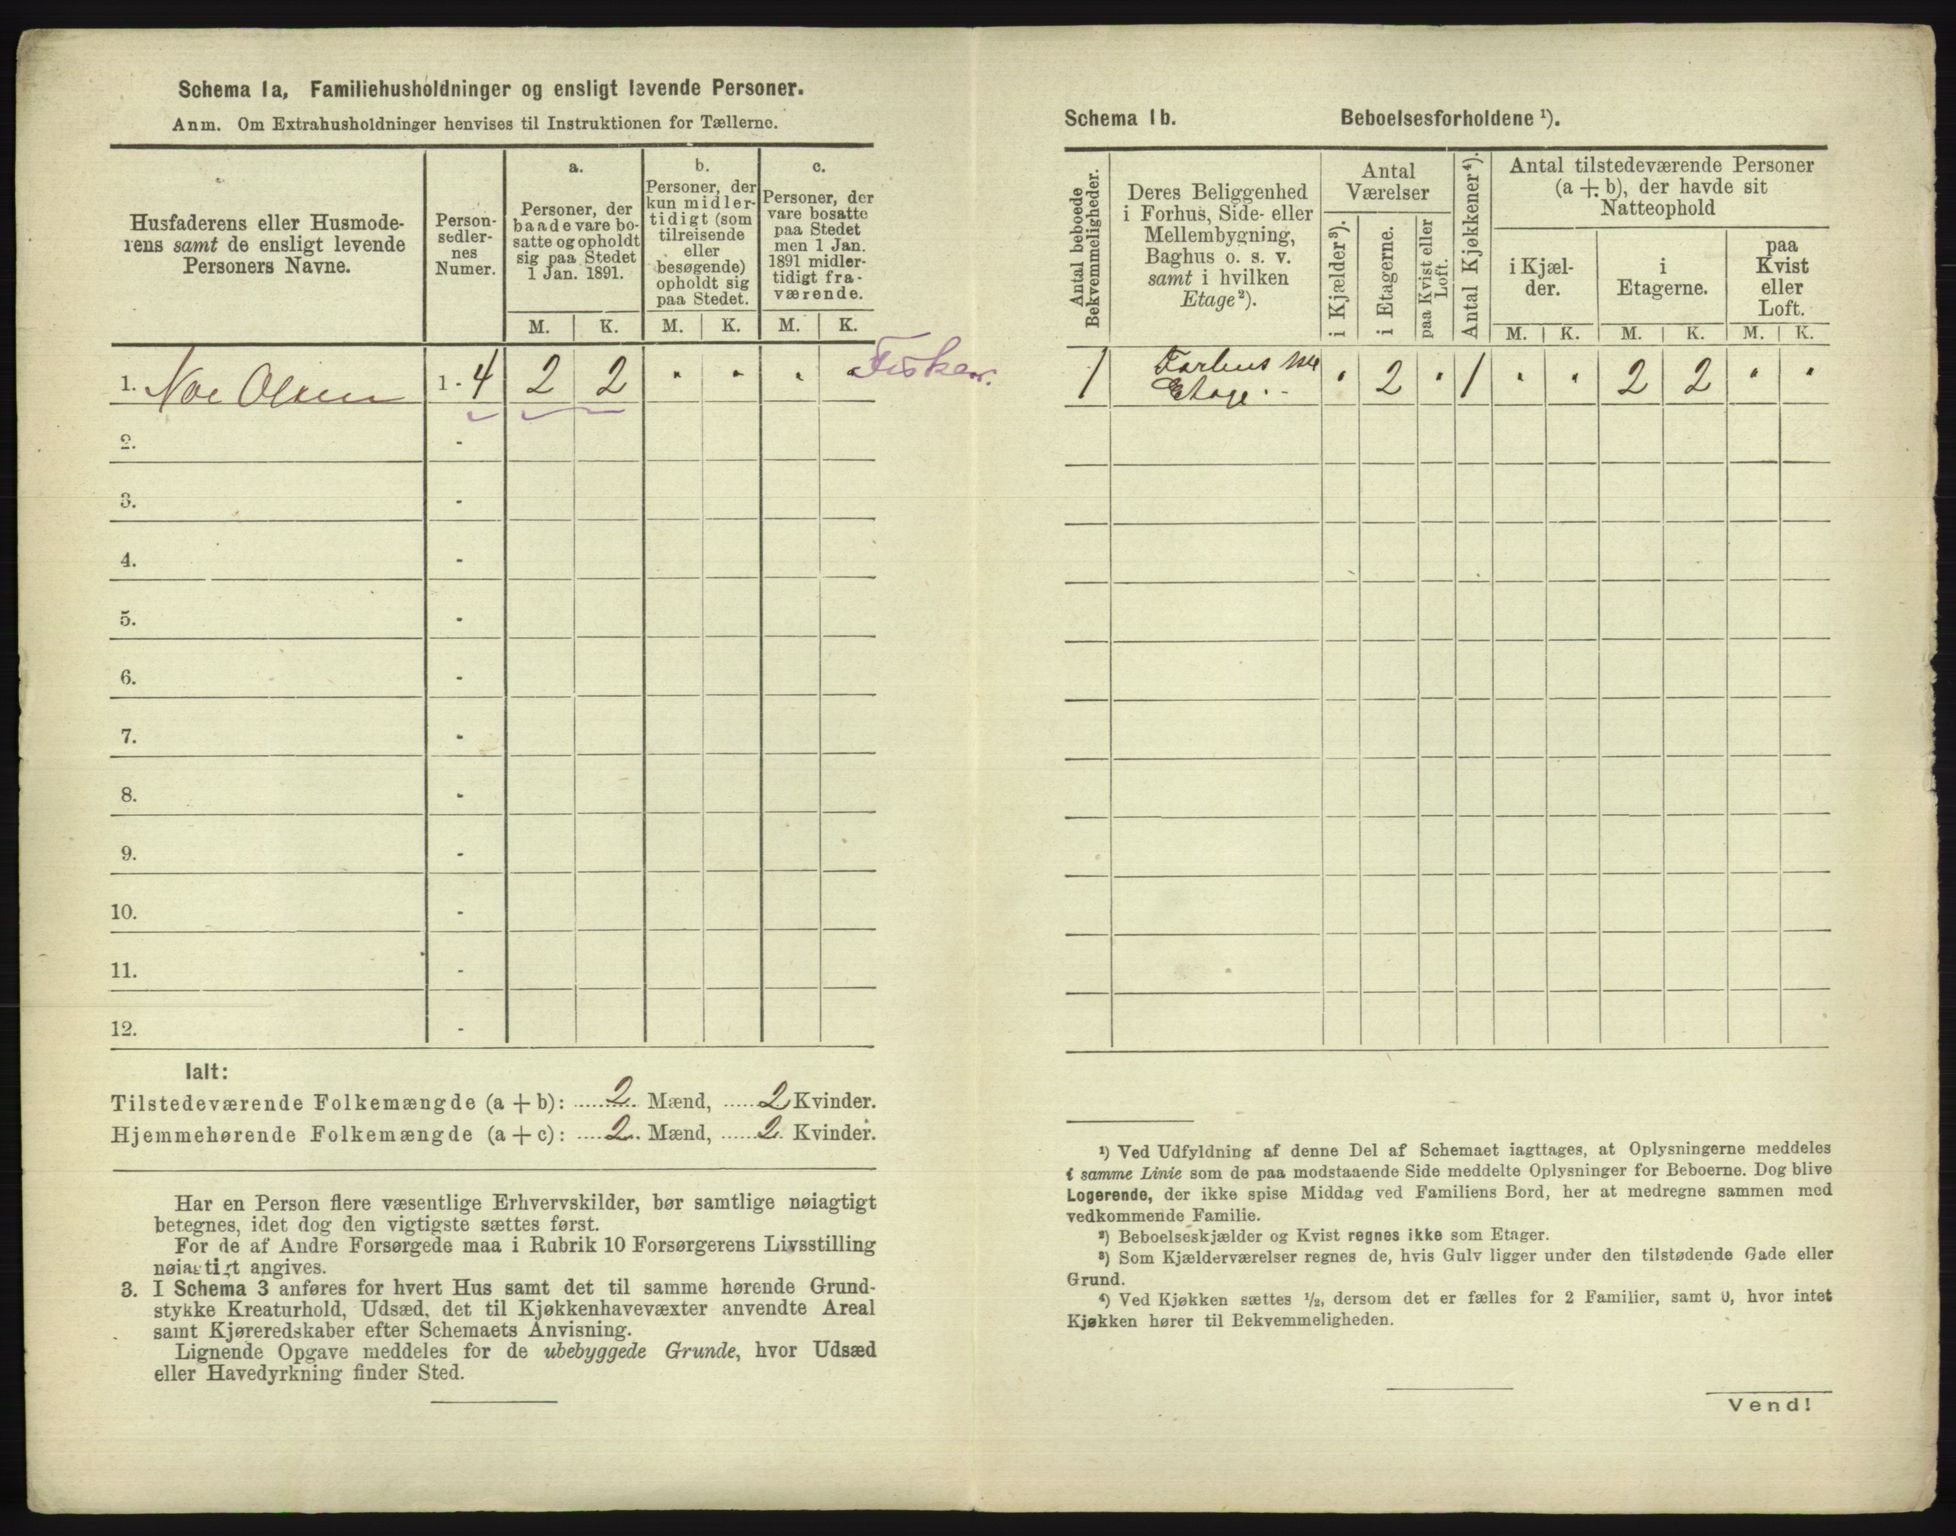 Schema 1a, Familiehusholdninger og ensligt levende Personer.
Anm. Om Extrahusholdninger henvises til Instruktionen for Tællerne.
Husfaderens eller Husmode-
rens samt de ensligt levende
Personers Navne.
Person-
sedler-
nes
Numer.
a.
Personer, der
baade vare bo-
satte og opholdt
sig paa Stedet
1 Jan. 1891.
b.
Personer, der
kun midler-
tidigt (som
tilreisende
eller
besøgende)
opholdt sig
paa Stedet.
c.
Personer, der
vare bosatte
paa Stedet
men 1 Jan.
1891 midler-
tidigt fra-
værende.
M. K. M. K. M. K.
1. Noe Olsen 1 - 4 2 2 " " " " Fisker.
2. -
3. -
4. -
5. -
6. -
7. -
8. -
9. -
10. -
11. -
12. -
Ialt:
Tilstedeværende Folkemængde (a + b): 2 Mænd, 2 Kvinder.
Hjemmehørende Folkemængde (a + c): 2 Mænd, 2 Kvinder.
Har en Person flere væsentlige Erhvervskilder, bør samtlige nøiagtigt
betegnes, idet dog den vigtigste sættes først.
For de af Andre Forsørgede maa i Rubrik 10 Forsørgerens Livsstilling
nøiagtigt angives.
3. I Schema 3 anføres for hvert Hus samt det til samme hørende Grund-
stykke Kreaturhold, Udsæd, det til Kjøkkenhavevæxter anvendte Areal
samt Kjøreredskaber efter Schemaets Anvisning.
Lignende Opgave meddeles for de ubebyggede Grunde, hvor Udsæd
eller Havedyrkning finder Sted.
Schema 1b. Beboelsesforholdene ¹).
Antal beboede
Bekvemmeligheder.
Deres Beliggenhed
i Forhus, Side- eller
Mellembygning,
Baghus o. s. v.
samt i hvilken
Etage²).
Antal
Værelser
i Kjælder³).
i Etagerne.
paa Kvist eller
Loft.
Antal Kjøkkener⁴).
Antal tilstedeværende Personer
(a + b), der havde sit
Natteophold
i Kjæl-
der.
i
Etagerne.
paa
Kvist
eller
Loft.
M. K. M. K. M. K.
1 Forhus 1ste
Etage. " 2 " 1 " " 2 2 " "
¹) Ved Udfyldning af denne Del af Schemaet iagttages, at Oplysningerne meddeles
i samme Linie som de paa modstaaende Side meddelte Oplysninger for Beboerne. Dog blive
Logerende, der ikke spise Middag ved Familiens Bord, her at medregne sammen med
vedkommende Familie.
²) Beboelseskjælder og Kvist regnes ikke som Etager.
³) Som Kjælderværelser regnes de, hvis Gulv ligger under den tilstødende Gade eller
Grund.
⁴) Ved Kjøkken sættes ½, dersom det er fælles for 2 Familier, samt 0, hvor intet
Kjøkken hører til Bekvemmeligheden.
Vend!